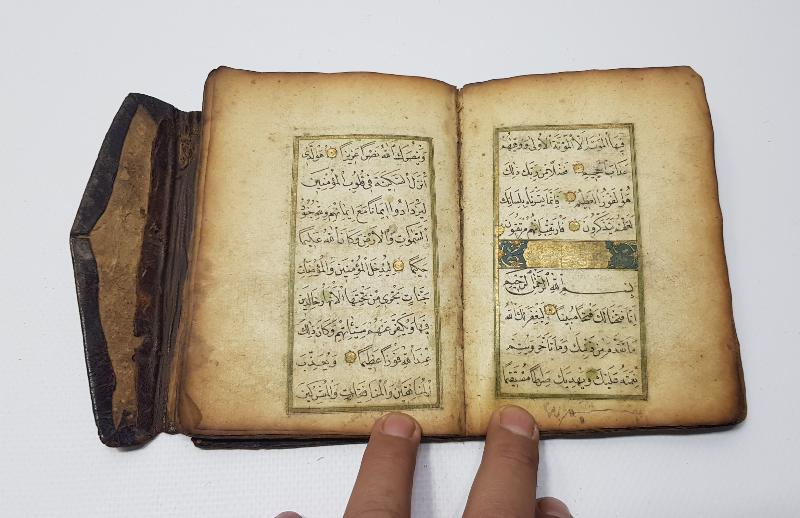 فيها الموت الا الموتة الاولى ووقيهم
عذاب الجحيم فضلا من ربك ذلك
هو الفوز العظيم فانما يسرناه بلسانك
لعلهم يتذكرون فارتقب انهم مرتقبون
بسم الله الرحمن الرحيم
انا فتحنا لك فتحا مبينا ليغفر لك الله
ما تقدم من ذنبك وما تأخر ويتم
نعمته عليك ويهديك صراطا مستقيما
وينصرك الله نصرا عزيزا هو الذي
انزل السكينة في قلوب المؤمنين
ليزدادوا ايمانا مع ايمانهم ولله جنود
السموات والارض وكان الله عليما
حكيما ليدخل المؤمنين والمؤمنات
جنات تجري من تحتها الانهار خالدين
فيها ويكفر عنهم سيئاتهم وكان ذلك
عند الله فوزا عظيما ويعذب
المنافقين والمنافقات والمشركين